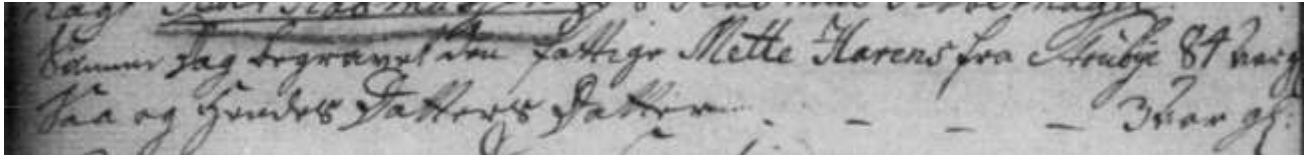 Samme Dag begravet den fattige Mette Harens fra Strubye 84 aar g
Saa og Hendes Datters Datter - - - - 3 aar gl: